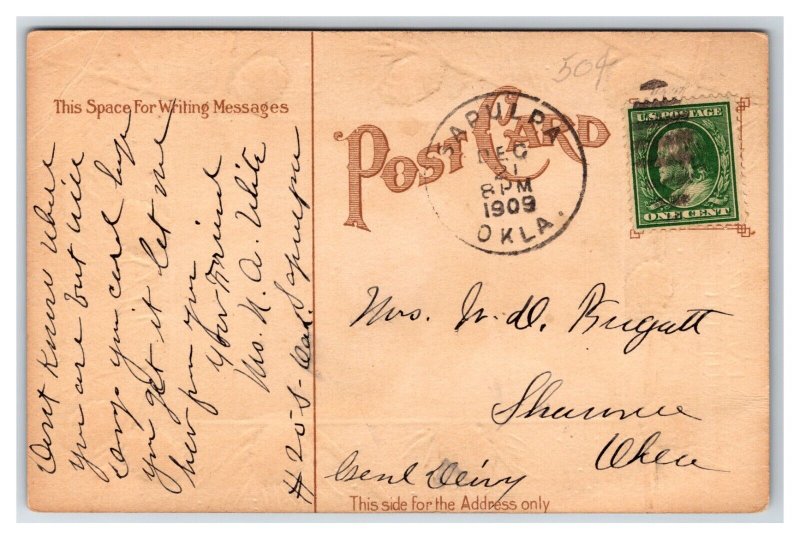 This Space For Writing Messages
Dont know where
you are but will
you card hope
you get it let me
her from you
your Friend
Mrs. N. A. White
#205- Oak. Sapulpa
50¢
POST CARD
SAPULPA
DEC
21
8 PM
1909
OKLA.
U.S. POSTAGE
ONE CENT
Mrs. W. D.
Shawnee
Okla
Genl Delivy
This side for the Address only